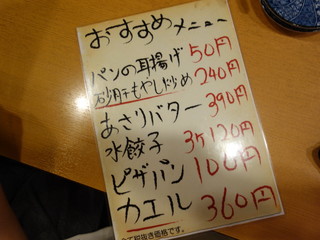 おすすめメニュー
パンの耳揚げ 50円
砂肝もやし炒め 240円
あさりバター 390円
水餃子 3ケ120円
ピザパン 100円
カエル 360円
全て税抜き価格です。